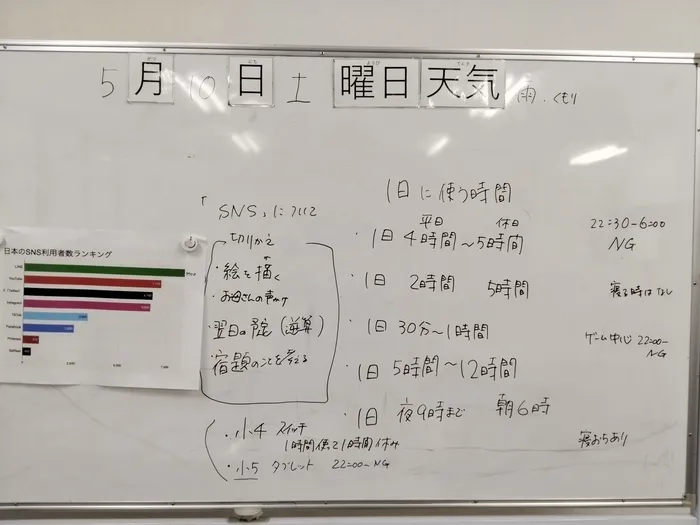 5月10日土曜日天気 雨.くもり
「SNS」について
切りかえ
・絵を描く
・お母さんの声かけ
・翌日の予定(逆算)
・宿題のことを考える
・小4 スイッチ
1時間使って1時間休み
・小5 タブレット 22:00~NG
1日に使う時間
平日 休日
・1日 4時間~5時間 22:30-6:00 NG
・1日 2時間 5時間 寝る時はなし
・1日 30分~1時間 ゲーム中心 22:00~NG
・1日 5時間~12時間
・1日 夜9時まで 朝6時 寝おちあり
日本のSNS利用者数ランキング
LINE
YouTube
X (Twitter)
Instagram
TikTok
Facebook
Pinterest